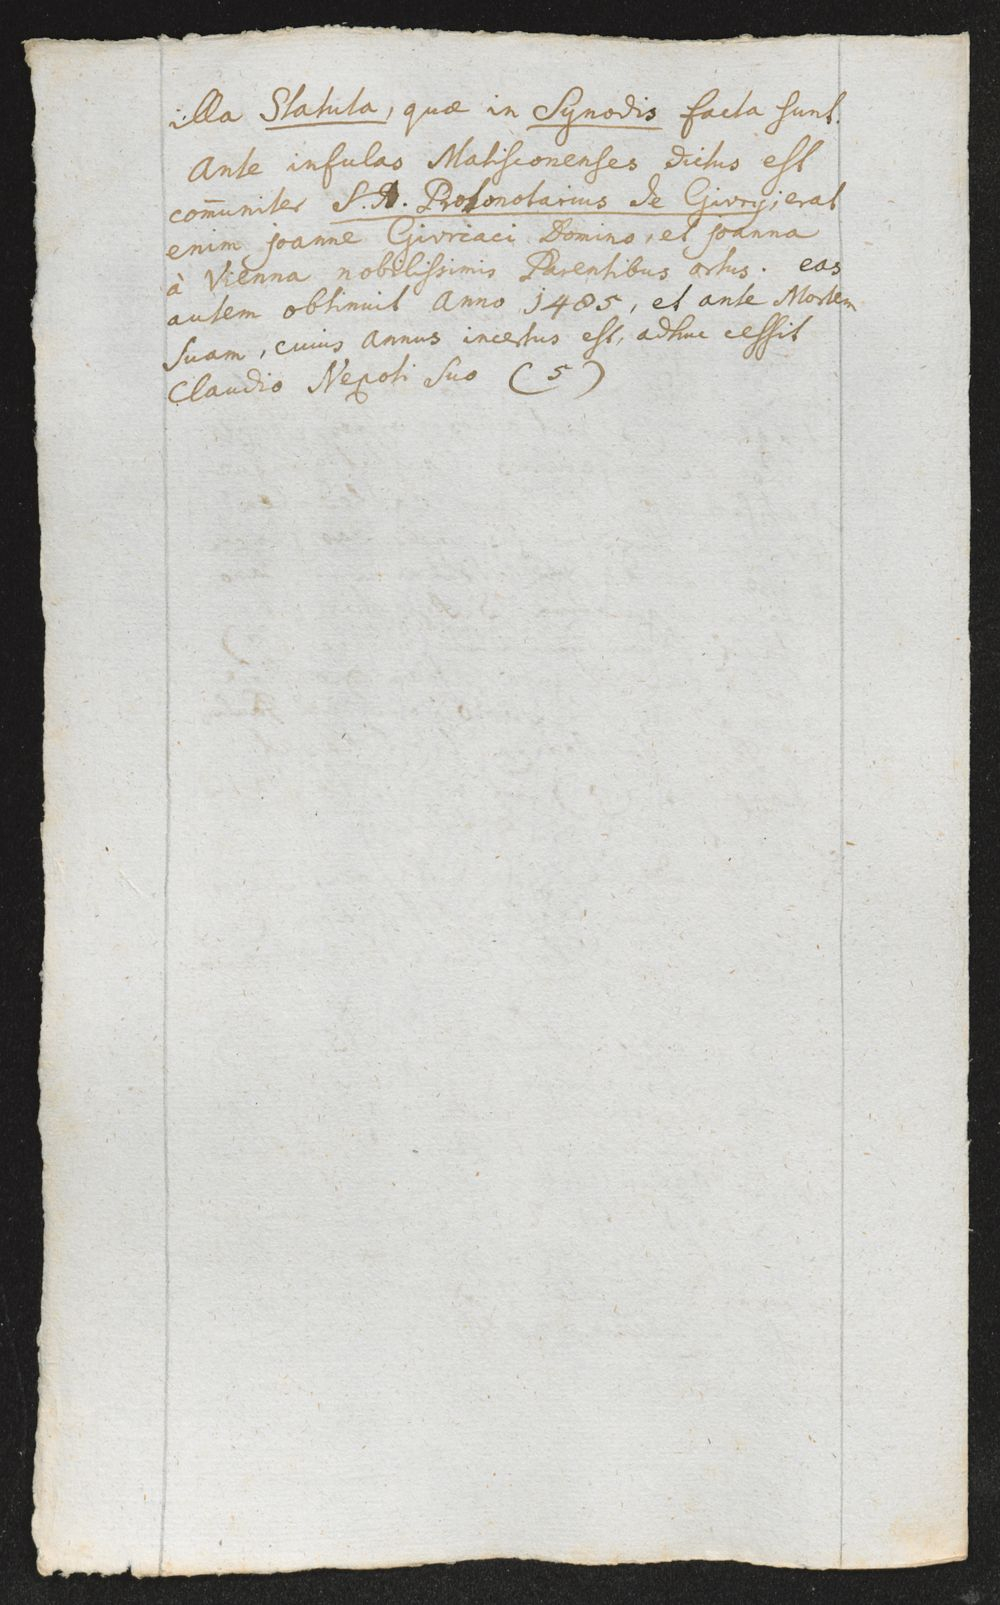 illa Statuta, quæ in Synodis facta sunt.
Ante infulas Matisconenses dictus est
com̃uniter S. A. Protonotarius de Givry; erat
enim joanne Givriaci Domino, et joanna
à Vienna nobilissimis Parentibus ortus. eas
autem obtinuit Anno 1485, et ante Mortem
suam, cuius Annus incertus est, adhuc cessit
Claudio Nepoti suo (5)